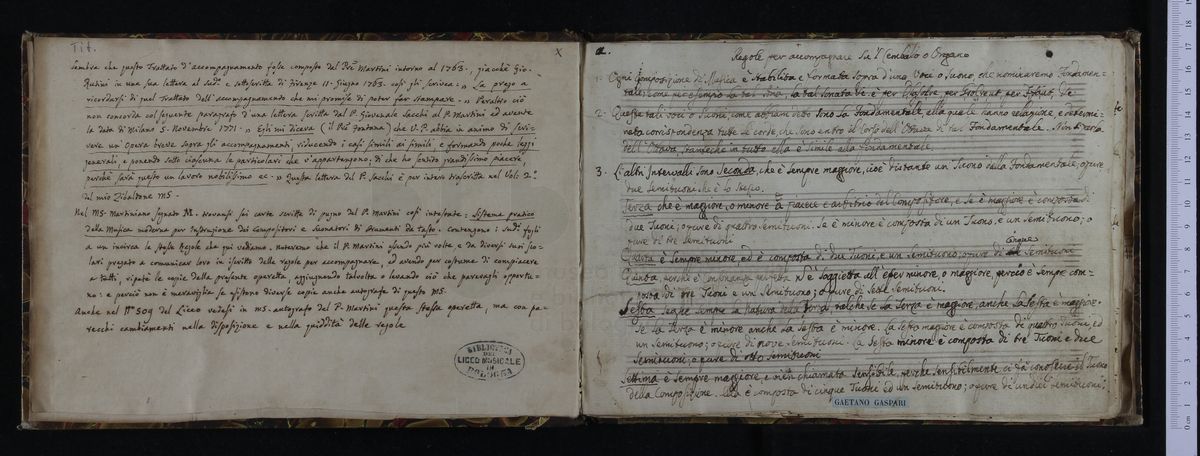 Tit.
x
Sembra che questo Trattato d'accompagnamento fosse composto dal Pre Martini intorno al 1763., giacchè Gio.
Rutini in una sua lettera al sudo. e sottoscritta di Firenze 11. Giugno 1763. così gli scriveva: „ La prego a
ricordarsi di quel Trattato dell'accompagnamento che mi promise di poter far stampare. „ Peraltro ciò
non concorda col seguente paragrafo d'una lettera scritta dal P. Giovenale Sacchi al P. Martini ed avente
la data di Milano 5. Novembre 1771. „ Egli mi diceva (il Pre Fontana) che V. P. abbia in animo di scri-
vere un Opera breve sopra gli accompagnamenti, riducendo i casi simili ai simili e formando poche leggi
generali, e ponendo sotto ciascuna le particolari che v'appartengono: di che ho sentito grandissimo piacere,
perchè sarà questo un lavoro nobilissimo ec. „ Questa lettera del P. Sacchi è per intero trascritta nel Vol: 2.o
del mio Zibaldone MS.
Nel MS. Martiniano segnato M. trovansi sei carte scritte di pugno del P. Martini così intestate: Sistema pratico
della Musica moderna per Instruzione dei Compositori e Suonatori di Stumenti da tasto. Contengono i sudi. fogli
a un incirca le stesse Regole che qui vediamo. Noteremo che il P. Martini essendo più volte e da diversi suoi sco-
lari pregato a comunicar loro in iscritto delle regole per accompagnare, ed avendo per costume di compiacere
a tutti, ripetè le copie della presente operetta, aggiungendo talvolta o levando ciò che pareagli opportu-
no: e perciò non è maraviglia se esistono diverse copie anche autografe di questo MS.
Anche nel No 509 del Liceo vedesi in MS. autografo del P. Martini questa stessa operetta, ma con pa-
recchi cambiamenti nella disposizione e nella quiddità delle regole
BIBLIOTECA
DEL
LICEO MUSICALE
DI
BOLOGNA
Regole per accompagnare su 'l Cembalo o Organo
1. Ogni Composizione di Musica è stabilita e formata sopra d'una Voce o Suono, che nomineremo Fondamen-
tale; come per esempio la tal Aria, la tal Sonata &c. è per Gsolreut, per Ffaut, &c
2. Queste tali voci o Suoni come abbiam detto sono la Fondamentale, alla quale hanno relazione, e determi-
nata corrispondenza tutte le corde, che sono entro il Corpo dell'Ottava di tal Fondamentale. Non si parla
dell'Ottava, stanteche in tutto ella è simile alla Fondamentale.
3. Li altri Intervalli sono Seconda, che è sempre maggiore, cioè distante un Tuono dalla Fondamentale, o pure
due Semituoni che è lo stesso.
Terza che è maggiore, o minore a piacere e arbitrio del Compositore, e se è maggiore è composta di
due Tuoni; o pure di quattro Semituoni. Se è minore è composta di un Tuono, e un Semituono; o
pure di tre Semituoni
Quarta è sempre minore, ed è composta di due Tuoni, e un Semituono; o pure di cinque Semituoni
Quinta, perche è consonanza perfetta nè è soggetta ad esser minore, o maggiore, perciò è sempre com-
posta di tre Tuoni e un Semituono; o pure di Sette Semituoni.
Sesta segue sempre la Natura della Terza, talche se la Terza è maggiore, anche la Sesta è maggiore.
Se la Terza è minore anche la Sesta è minore. La Sesta maggiore è composta di quattro Tuoni, ed
un Semituono; o pure di nove Semituoni. La Sesta minore è composta di tre Tuoni e due
Semituoni; o pure di otto Semituoni
Settima è sempre maggiore, e vien chiamata Sensibile, perche sensibilmente ci fà conoscere il Tuono
della Composizione. Ella è composta di cinque Tuoni ed un Semituono; o pure di undici Semituoni.
GAETANO GASPARI
0 cm 1 2 3 4 5 6 7 8 9 10 11 12 13 14 15 16 17 18